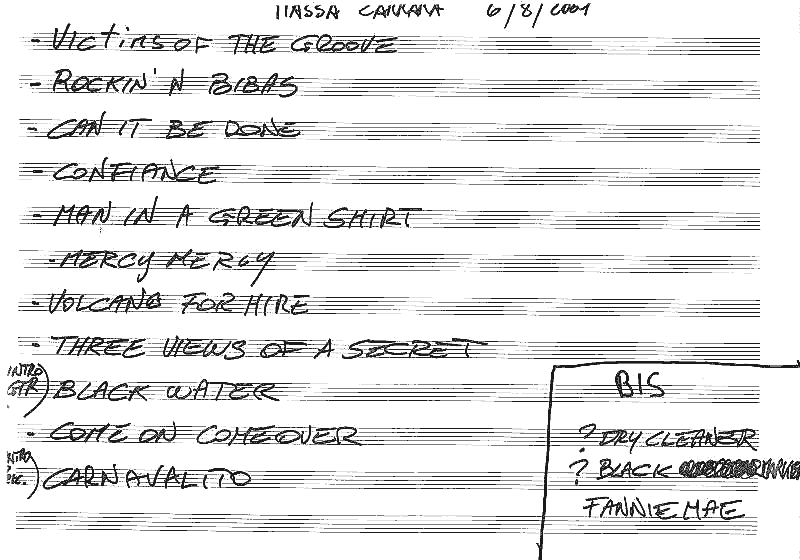 MASSA CARRARA 6/8/2001
- VICTIMS OF THE GROOVE
- ROCKIN' N BIBAS
- CAN IT BE DONE
- CONFIANCE
- MAN IN A GREEN SHIRT
- MERCY MERCY
- VOLCANO FOR HIRE
- THREE VIEWS OF A SECRET
INTRO GTR) BLACK WATER
- COME ON COMEOVER
INTRO) CARNAVALITO
BIS
? DRY CLEANER
? BLACK
FANNIE MAE